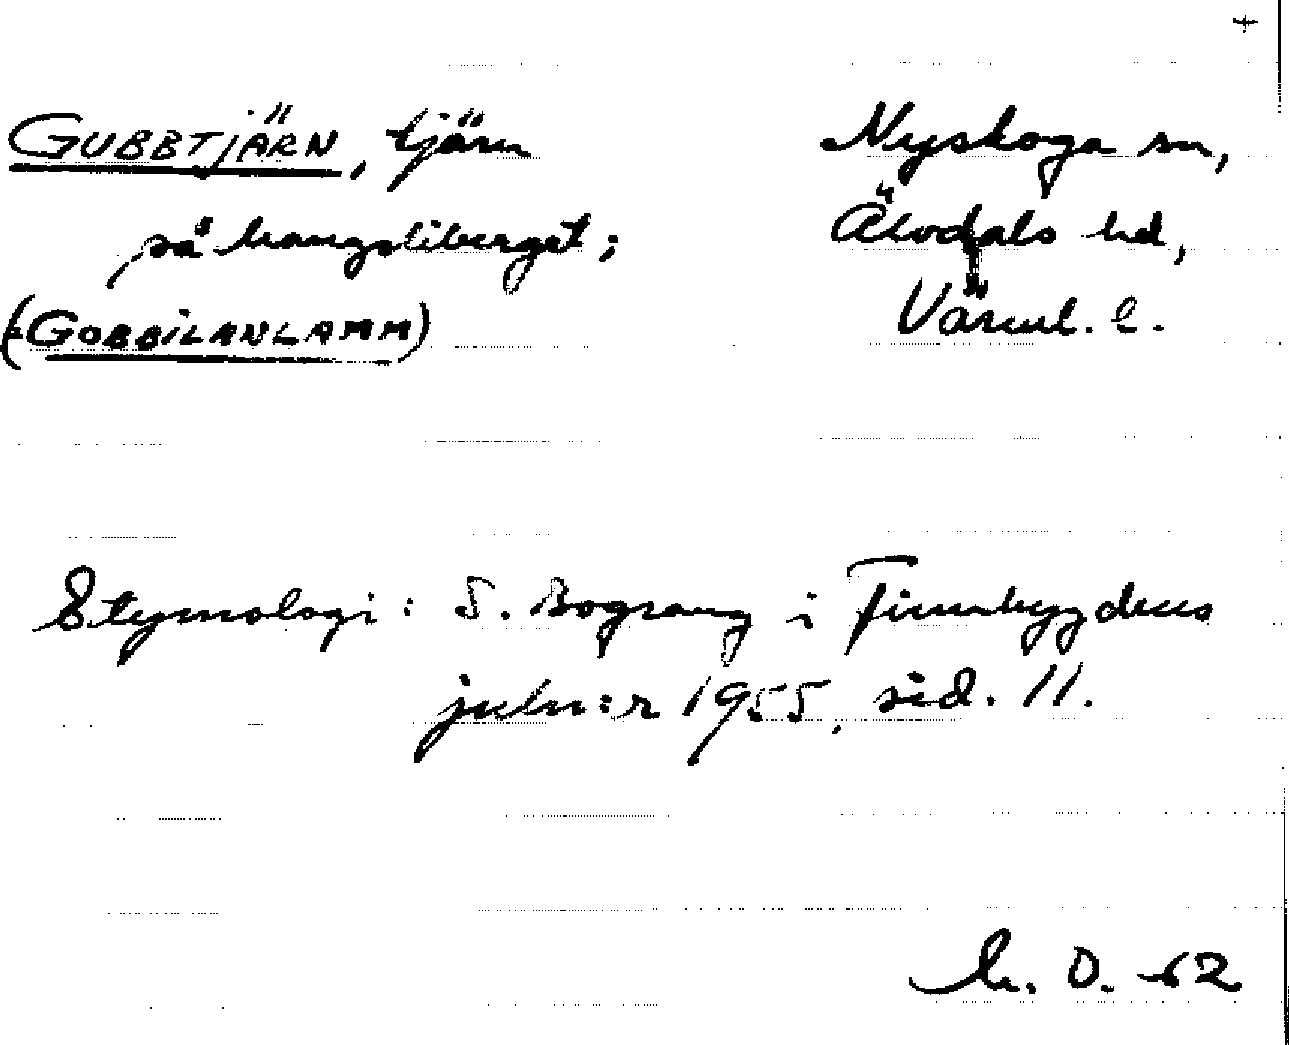 GUBBTJÄRN, tjärn
på hangsliberget;
(GOBBILANLAMM)
Nyskoga sn,
Älvdals hd,
Värml. l.
Etymologi: S. Bograng i Finnbygdens
juln:r 1955, sid. 11.
D. 62